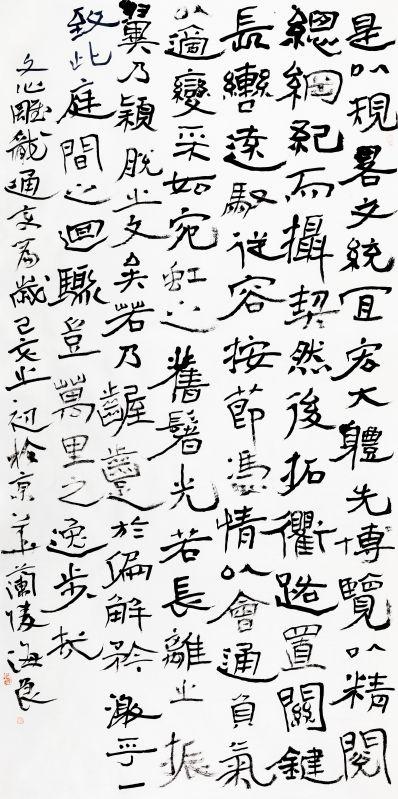 是以規畧文統宜宏大體先博覽以精閱
總綱紀而攝契然後拓衢路置關鍵
長轡遠馭從容按節憑情以會通負氣
以適變采如宛虹之奮鬐光若長離之振
翼乃穎脫之文矣若乃齷齪於偏解矜激乎一
致此庭間之迴驟豈萬里之逸步哉
文心雕龍通变篇歲己亥之初於京華蘭陵海良